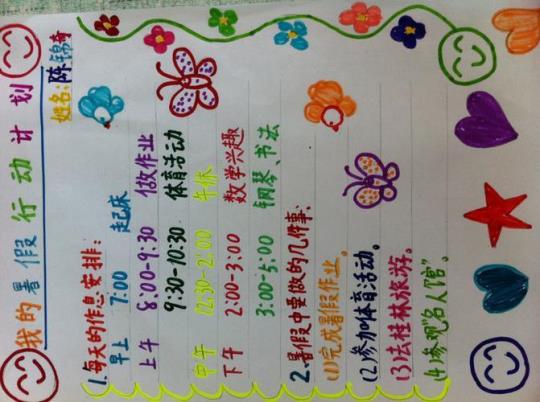 我的暑假行动计划
姓名:陈锦奇
1.每天的作息安排:
早上 7:00 起床
上午 8:00-9:30 做作业
9:30-10:30 体育活动
中午 12:30-2:00 午休
下午 2:00-3:00 数学兴趣
3:00-5:00 钢琴、书法
2.暑假中要做的几件事:
(1)完成暑假作业。
(2)参加体育活动。
(3)去桂林旅游。
(4)参观“名人馆”。